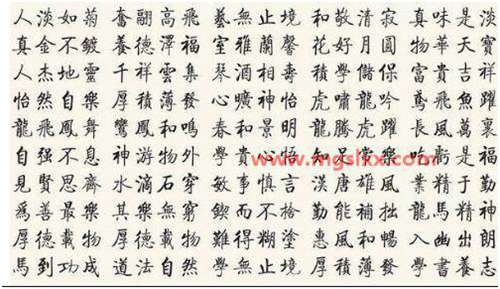 人淡如菊 奮翮高飛 藝無止境 和敬清寂 真味是淡
真金不鍍 養德澤福 室雅蘭馨 花好月圓 物華天寶
人杰地靈 千祥雲集 琴酒相壽 積學儲保 富貴吉祥
怡然自樂 厚積薄發 心曠神怡 虎嘯龍吟 鳶飛魚躍
龍飛鳳舞 鸞鳳和鳴 春和景明 龍騰虎躍 長風萬裏
自强不息 神游物外 學貴心悟 知足常樂 吃虧是福
www.mgslkx.com
見賢思齊 水滴石穿 敏事慎言 漢唐雄風 業精于勤
爲善最樂 其樂無窮 鍥而不捨 勤能補拙 龍馬精神
厚德載物 厚德載物 難得糊塗 惠風和暢 入幽出朗
馬到功成 道法自然 學無止境 厚積薄發 學書養志